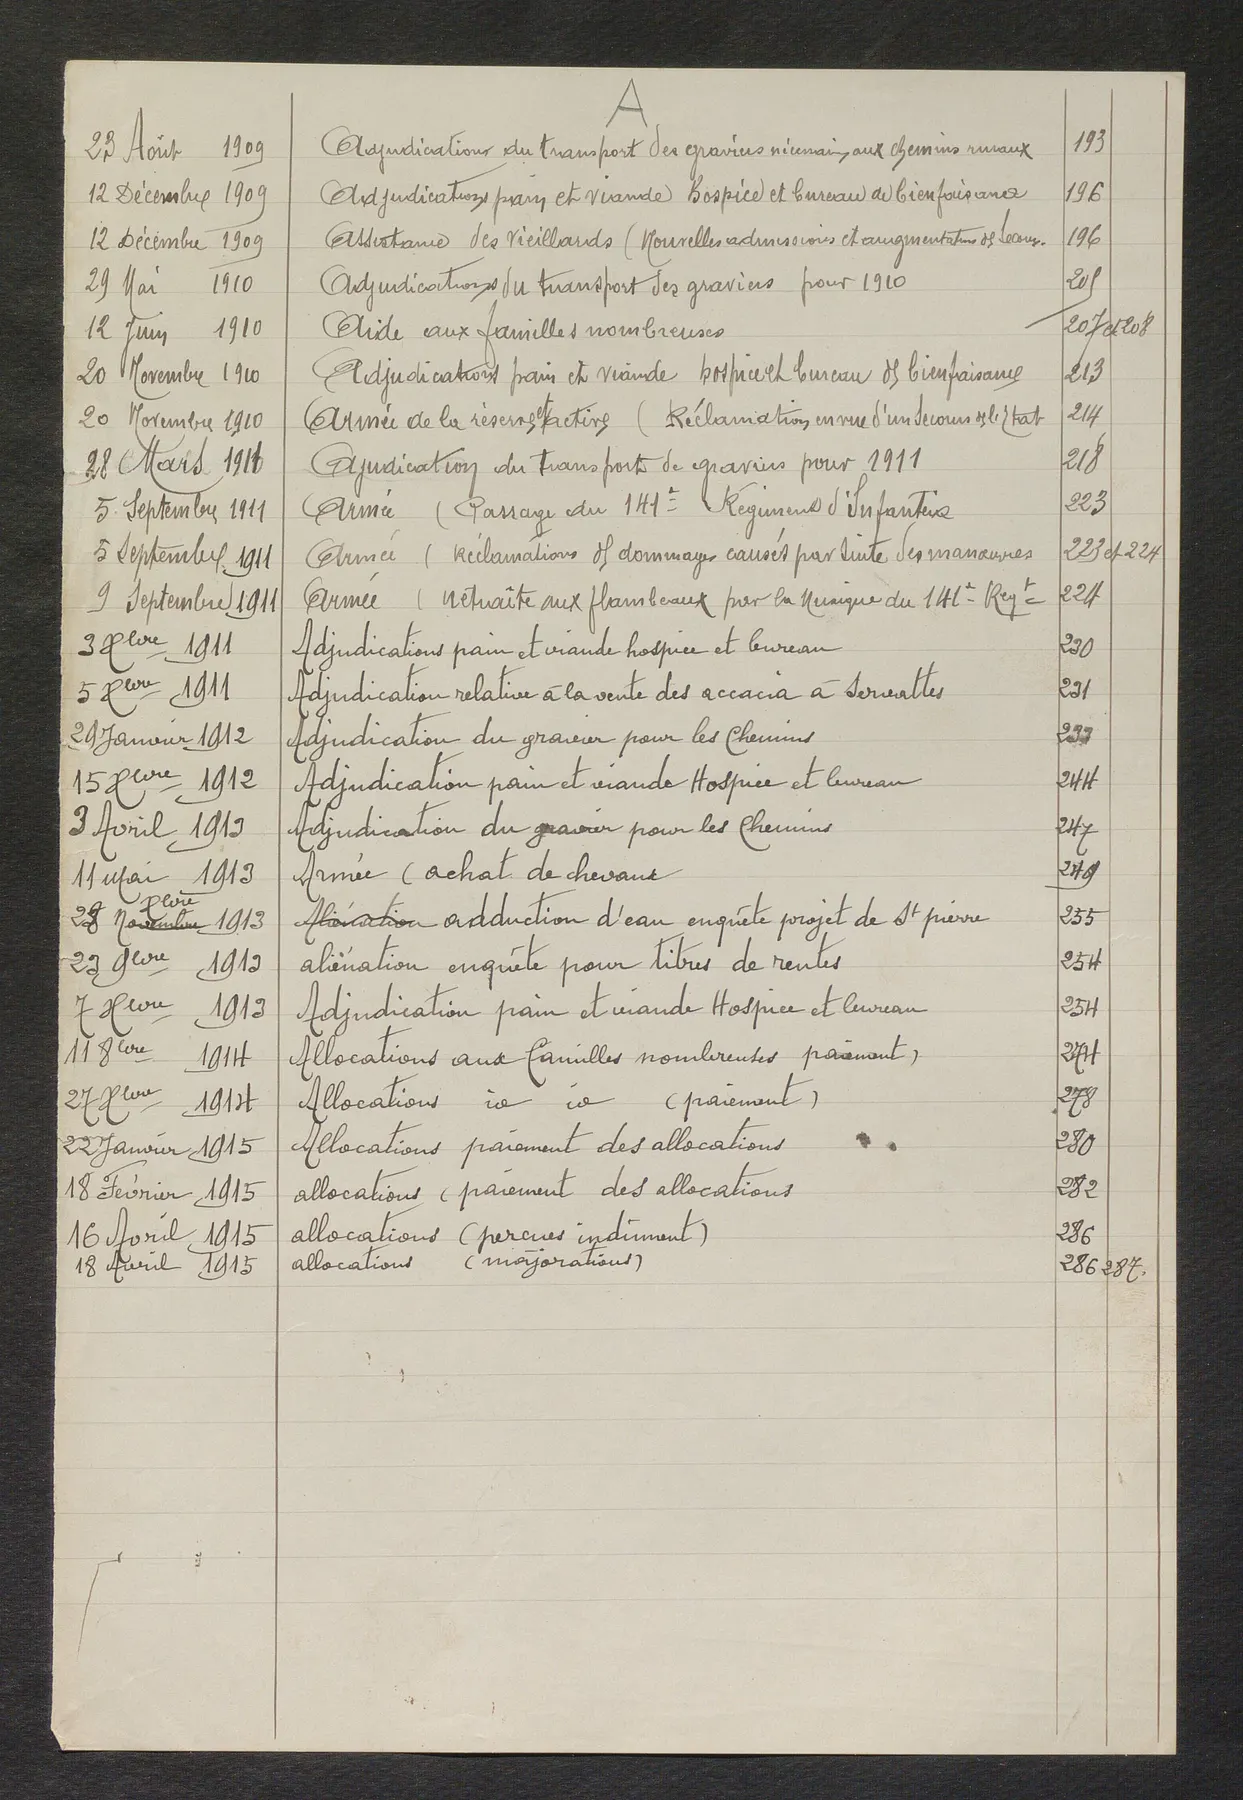 A
23 Août 1909 Adjudications du transport des graviers nécessaires aux chemins ruraux 193
12 Décembre 1909 Adjudications pain et viande hospice et bureau de bienfaisance 196
12 Décembre 1909 Assistance des vieillards (Nouvelles admissions et augmentation de Secours. 196
29 Mai 1910 Adjudications du transport des graviers pour 1910 205
12 Juin 1910 Aide aux familles nombreuses 207 et 208
20 Novembre 1910 Adjudications pain et viande hospice et bureau de bienfaisance 213
20 Novembre 1910 Armée de la réserve et active (Réclamation en vue d'un secours de l'Etat 214
28 Mars 1911 Ajudication du transport de graviers pour 1911 218
5 Septembre 1911 Armée (Passage du 141e Régiment d'Infanterie 223
5 Septembre 1911 Armée (Réclamations de dommages causés par suite des manœuvres 223 et 224
9 Septembre 1911 Armée (Retraite aux flambeaux par la Musique du 141e Regt 224
3 Xbre 1911 Adjudications pain et viande hospice et bureau 230
5 Xbre 1911 Adjudication relative à la vente des accacia à 231
29 Janvier 1912 Adjudication du gravier pour les Chemins 233
15 Xbre 1912 Adjudication pain et viande Hospice et bureau 244
3 Avril 1913 Adjudication du gravier pour les Chemins 247
11 Mai 1913 Armée (achat de chevaux 249
Xbre
Novembre 1913 Aliénation adduction d'eau enquête projet de St pierre 255
23 9bre 1913 aliénation enquête pour titres de rentes 254
7 Xbre 1913 Adjudication pain et viande Hospice et bureau 254
11 8bre 1914 Allocations aux familles nombreuses paiement) 274
27 Xbre 1914 Allocations id id (paiement) 278
22 Janvier 1915 Allocations paiement des allocations 280
18 Février 1915 allocations (paiement des allocations 282
16 Avril 1915 allocations (percues indûment) 286
18 Avril 1915 allocations (majorations) 286 287.